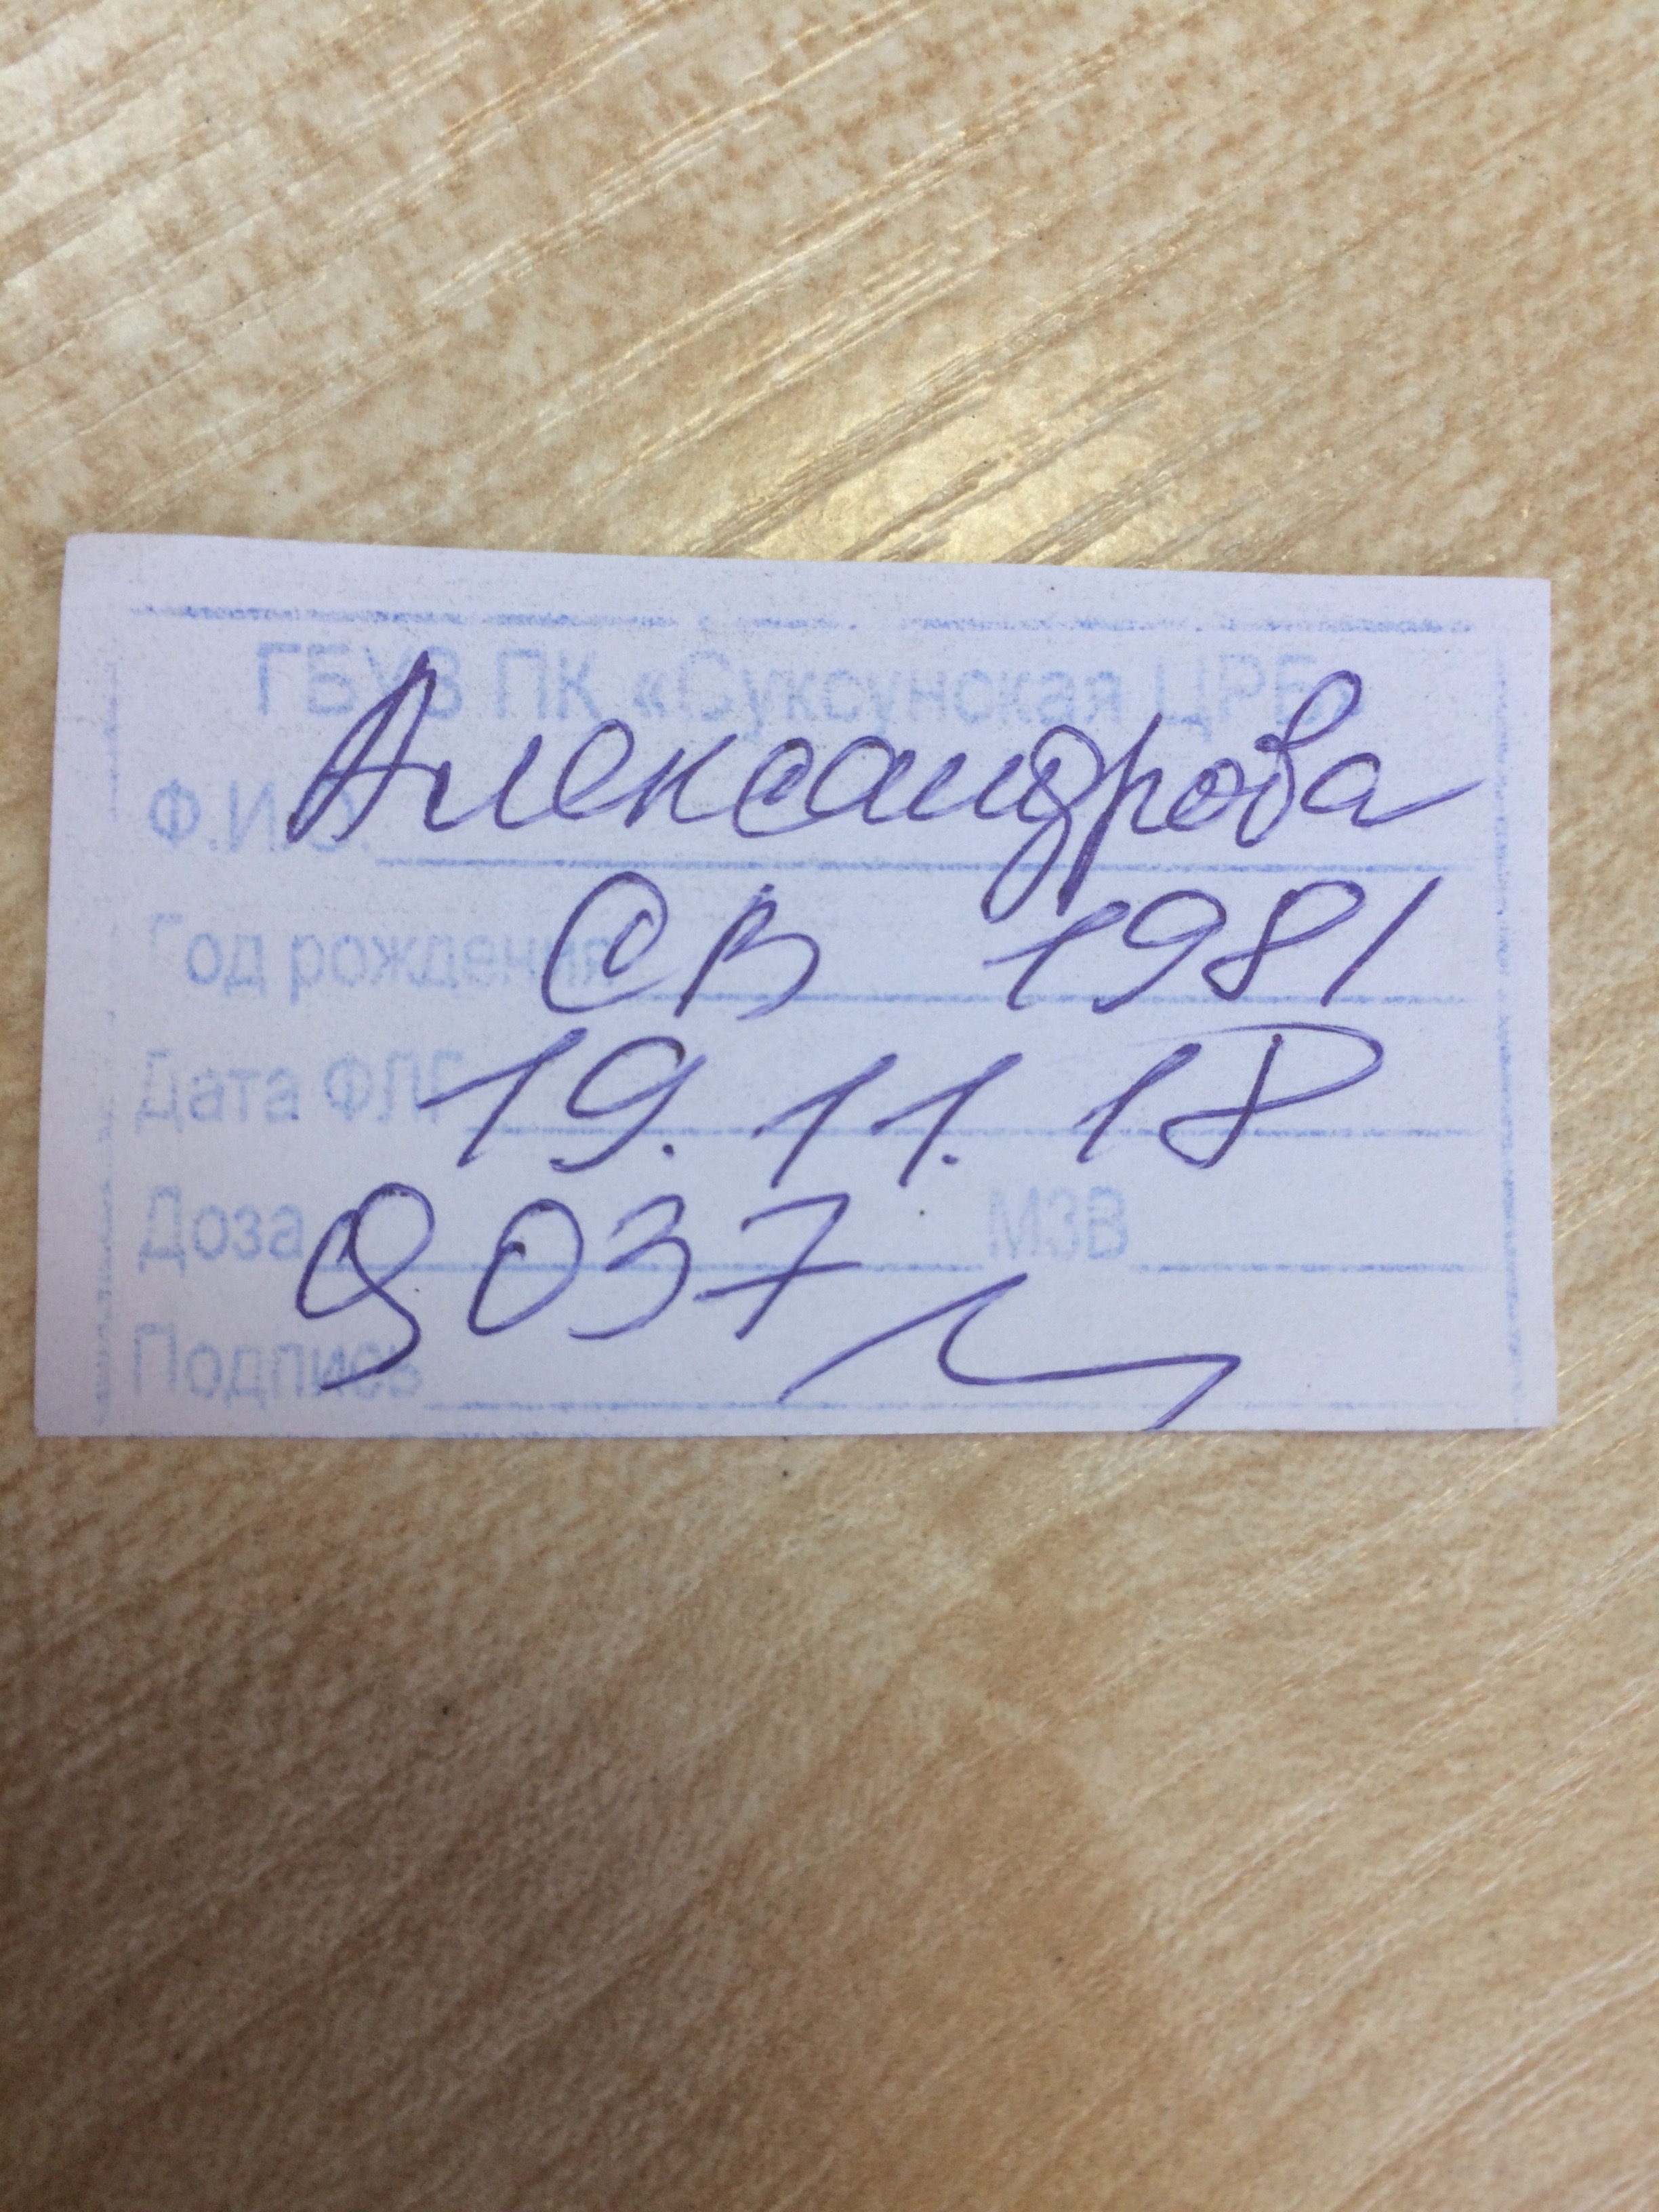 ГБУЗ ПК «Суксунская ЦРБ»
Ф.И.О. Александрова
Год рождения СВ 1981
Дата ФЛГ 19.11.18
Доза 9037 МЗВ
Подпись